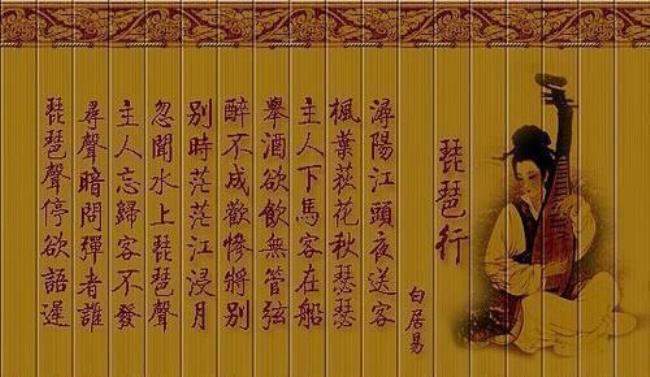 琵琶行
白居易
潯陽江頭夜送客
楓葉荻花秋瑟瑟
主人下馬客在船
舉酒欲飲無管弦
醉不成歡慘將別
別時茫茫江浸月
忽聞水上琵琶聲
主人忘歸客不發
尋聲暗問彈者誰
琵琶聲停欲語遲